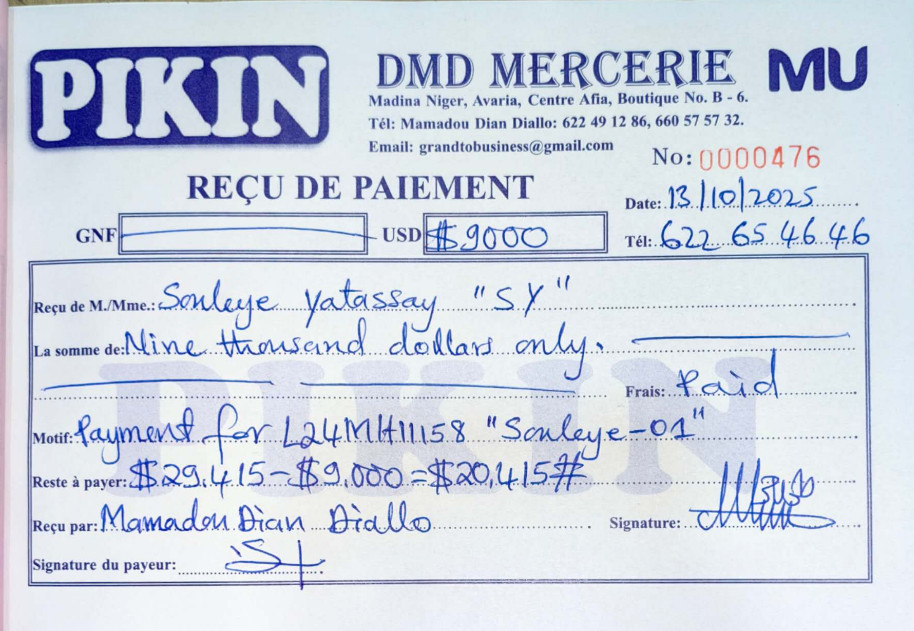 PIKIN
DMD MERCERIE
MU
Madina Niger, Avaria, Centre Afia, Boutique No. B - 6.
Tél: Mamadou Dian Diallo: 622 49 12 86, 660 57 57 32.
Email: grandtobusiness@gmail.com
No: 0000476
REÇU DE PAIEMENT
Date: 13/10/2025
GNF USD $9000
Tél: 622 65 46 46
Reçu de M./Mme.: Souleye Yatassay "SY"
La somme de: Nine thousand dollars only.
Frais: Paid
PIKIN
Motif: Payment for L24MH11158 "Souleye-01"
Reste à payer: $29,415-$9,000=$20,415#
Reçu par: Mamadou Dian Diallo Signature:
Signature du payeur: